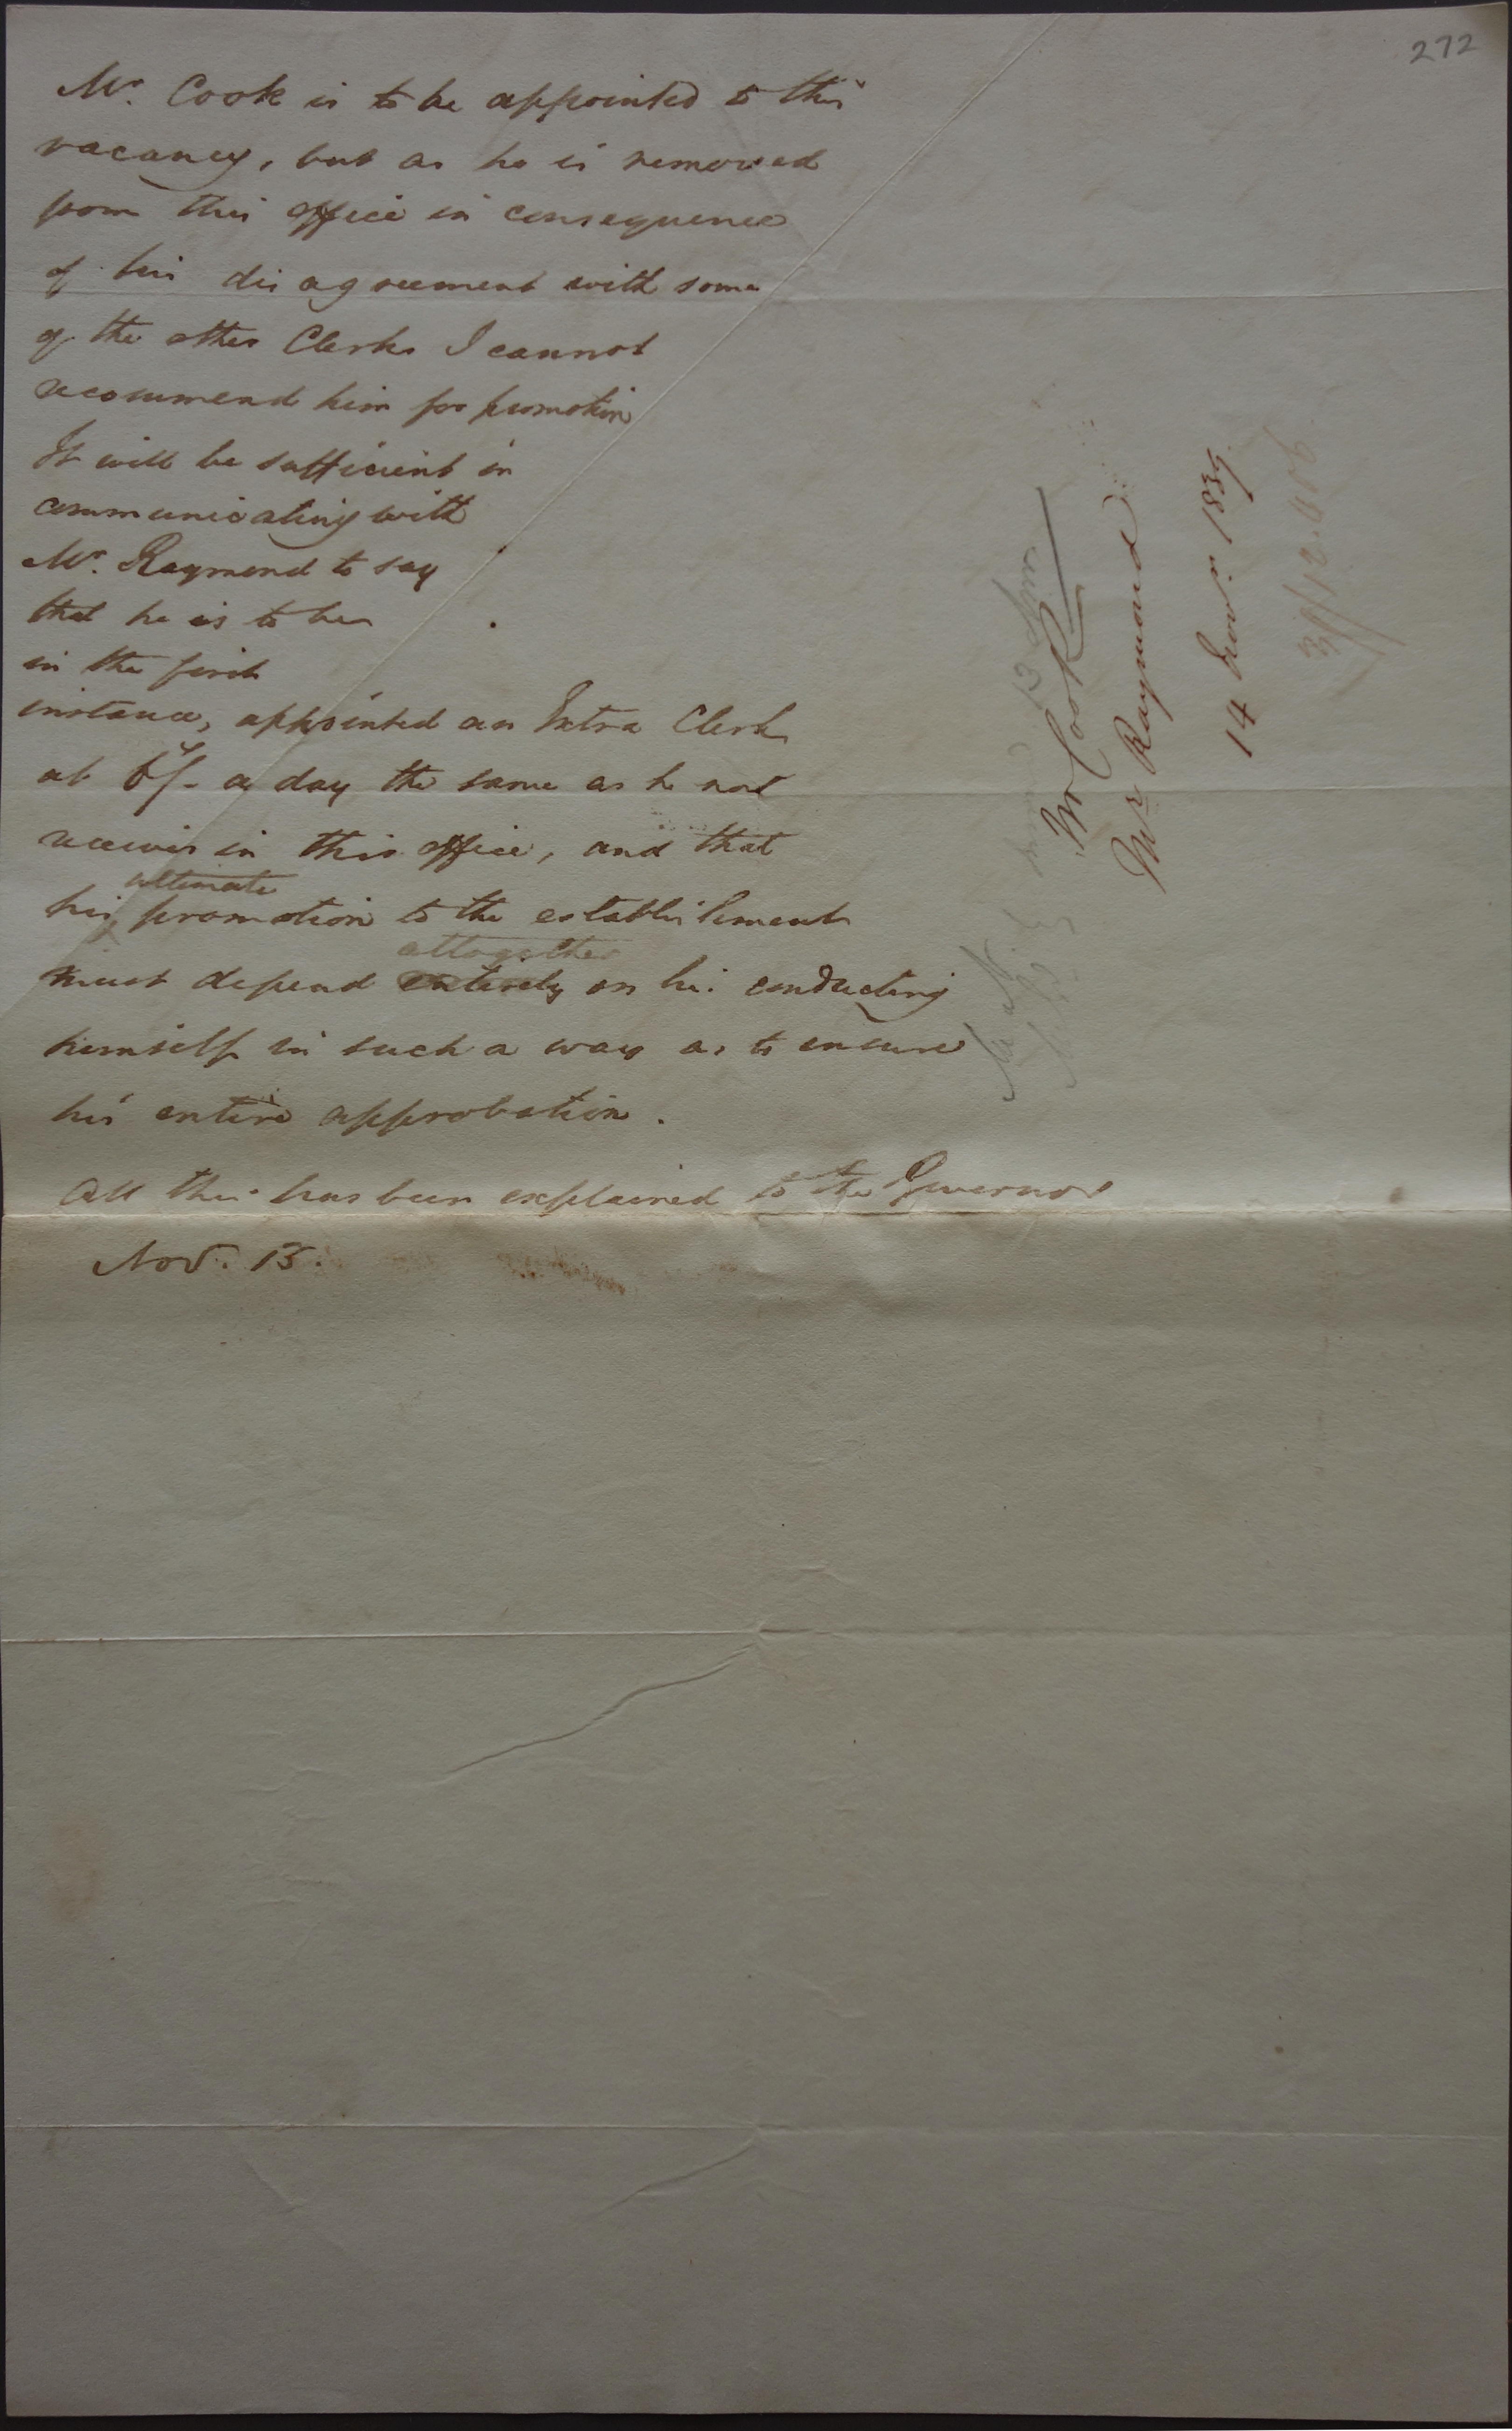 272
Mr. Cook is to be appointed to this
vacancy, but as he is removed
from this office in consequence
of his disagreement with some
of the other Clerks I cannot
recommend him for promotion
It will be sufficient in
communicating with
Mr. Raymond to say
that he is to be
in the first
instance, appointed an Extra Clerk
at 6/- a day the same as he now
receives in this office, and that
ultimate
his promotion to the establishment
altogether
must depend entirely on his conducting
himself in such a way as to ensure
his entire approbation.
All this has been explained to the Governor
Nov. 13.
Mr Cook
Mr Raymond
14 Novr. 1839